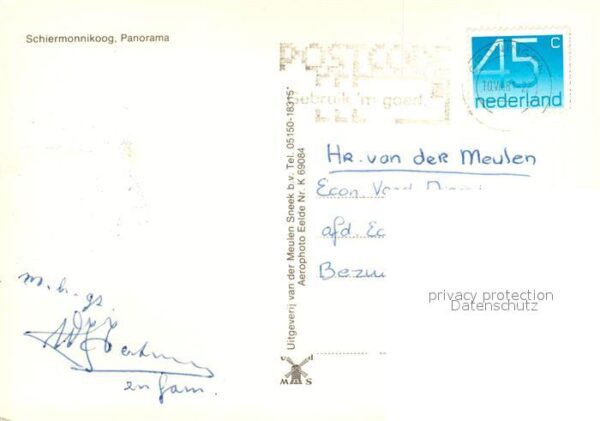 Schiermonnikoog, Panorama
POSTCODE
gebruik 'm goed
45 c
nederland
Uitgeverij van der Meulen Sneek b.v. Tel. 05150-18315*
Aerophoto Eelde Nr. K 69084
Hr. van der Meulen
Econ.
afd. Ec
Bezuı
privacy protection
Datenschutz
m.h.gr.
en fam.
v d
M S